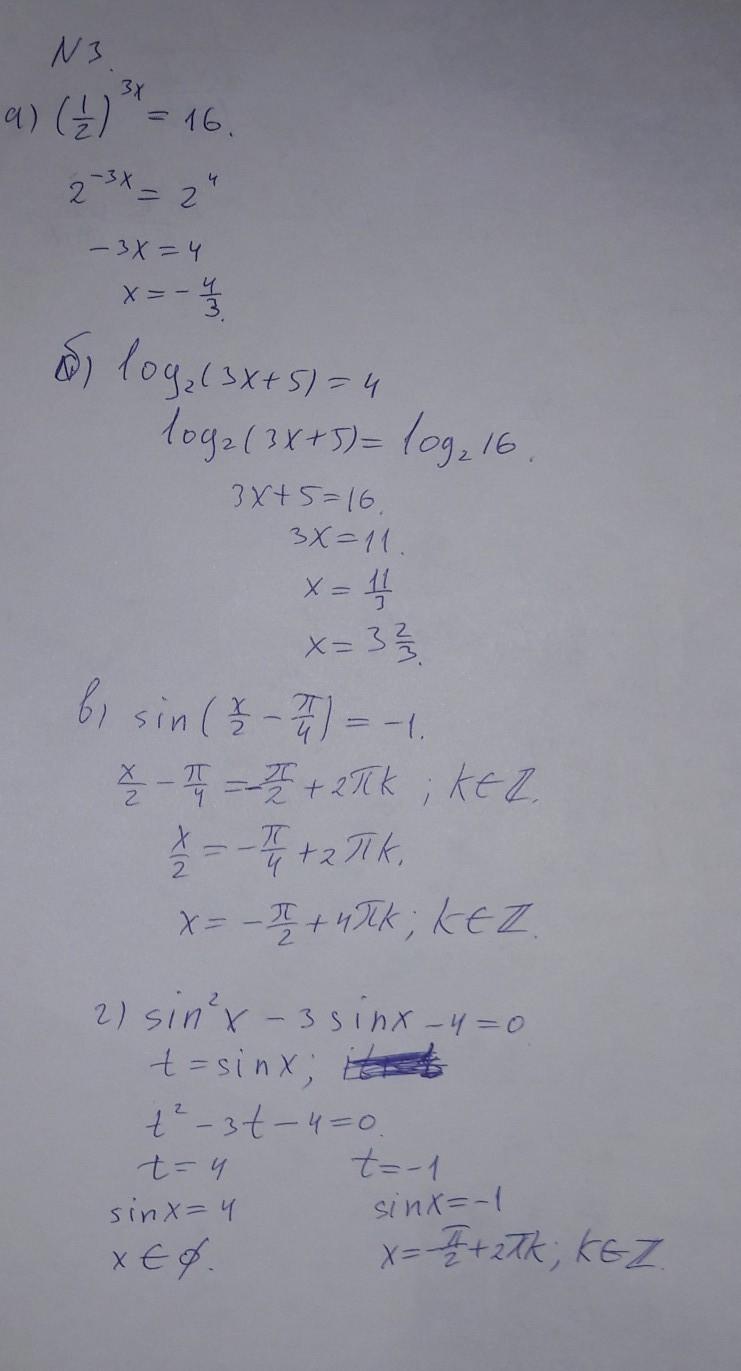 N3.
а) (1/2)^3x = 16.
2^-3x = 2^4
-3x = 4
x = -4/3.
б) log₂(3x+5) = 4
log₂(3x+5) = log₂16.
3x+5=16.
3x=11.
x = 11/3
x = 3 2/3.
в) sin(x/2 - π/4) = -1.
x/2 - π/4 = -π/2 + 2πk ; k∈Z.
x/2 = -π/4 + 2πk.
x = -π/2 + 4πk; k∈Z.
г) sin²x - 3 sinx - 4 = 0
t = sinx;
t² - 3t - 4 = 0.
t = 4 t = -1
sinx = 4 sinx = -1
x ∈ ∅. x = -π/2 + 2πk; k∈Z.